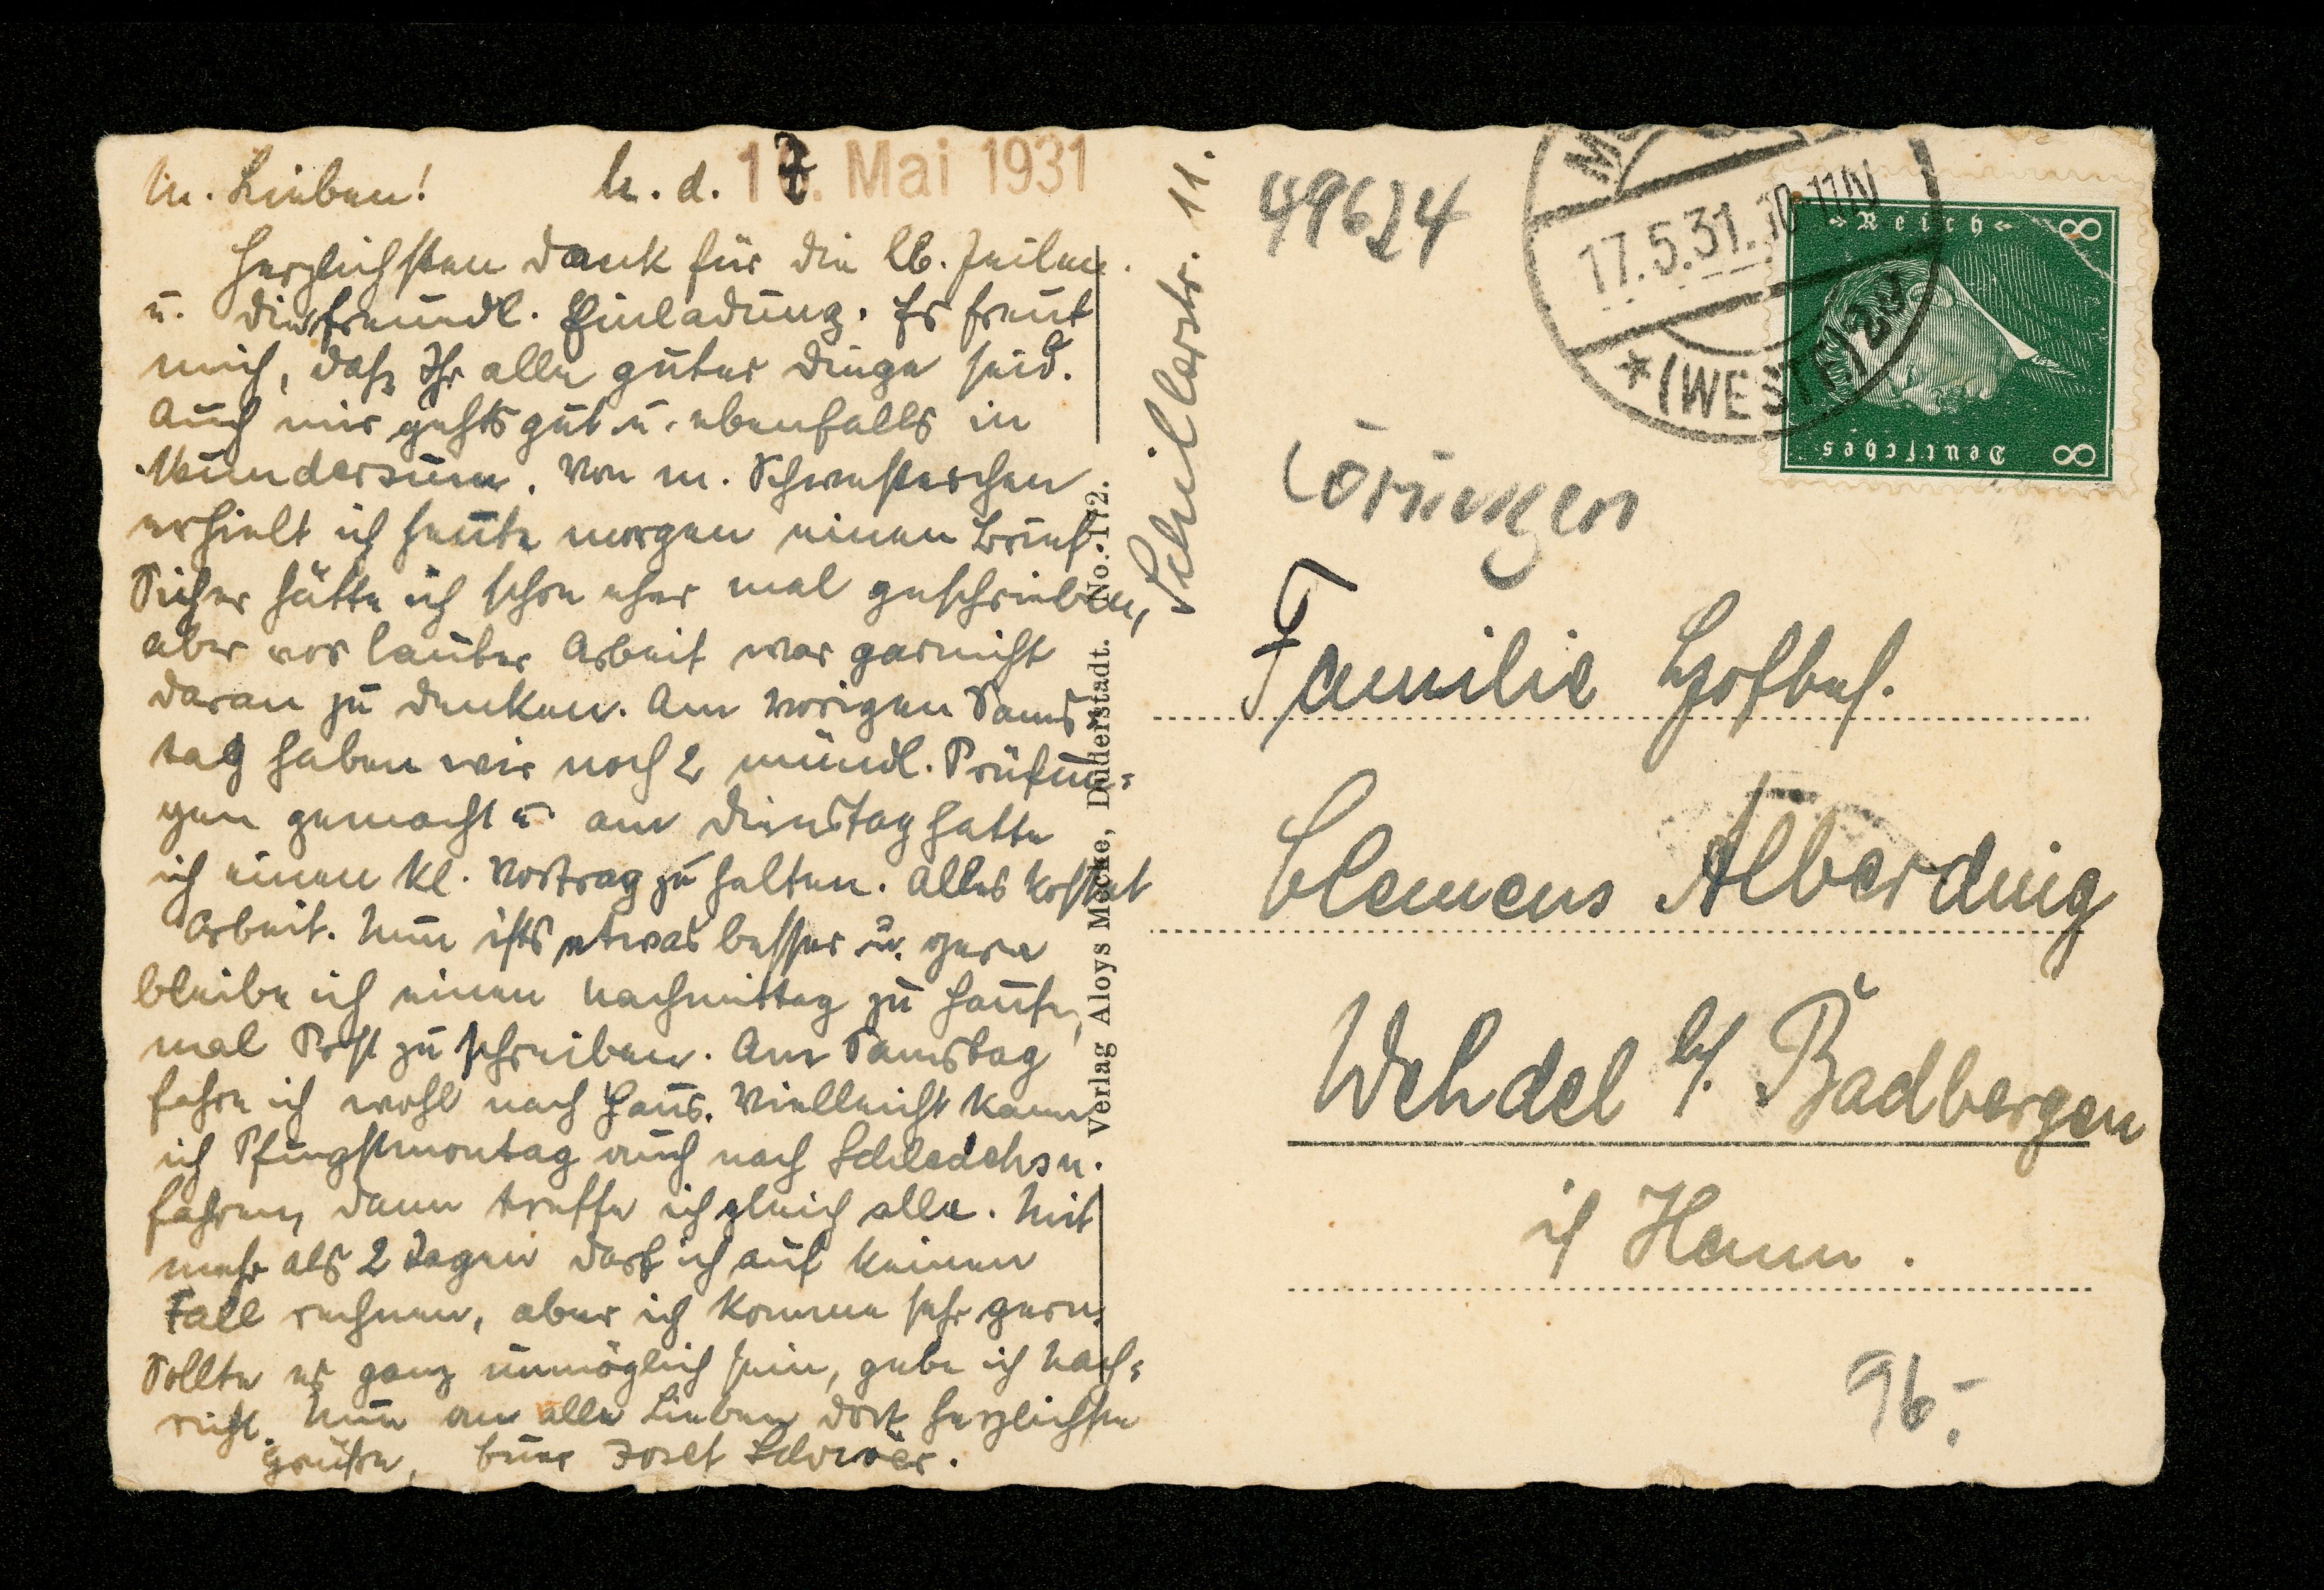 M. Lieben! M. d. 17. Mai 1931
Herzlichsten Dank für die lb. Zeilen
u. die freundl. Einladung. Es freut
mich, daß Ihr alle guter Dinge seid.
Auch mir gehts gut u. ebenfalls in
Von m. Schwesterchen
erhielt ich heute morgen einen Brief.
Sicher hätte ich schon eher mal geschrieben,
aber vor lauter Arbeit war garnicht
daran zu denken. Am vorigen Sams-
tag haben wir noch 2 mündl. Prüfun-
gen gemacht u. am Dienstag hatte
ich einen kl. Vortrag zu halten. Alles kostet
Arbeit. Nun ists etwas besser u. gern
bleibe ich einen Nachmittag zu Hause,
mal Post zu schreiben. Am Samstag
fahre ich wohl nach Haus. Vielleicht kann
ich Pfingstmontag auch nach Schledehsn.
fahren, dann treffe ich gleich alle. Mit
mehr als 2 Tagen darf ich auf keinen
Fall rechnen, aber ich komme sehr gern.
Sollte es ganz unmöglich sein, gebe ich Nach-
richt. Nun an alle Lieben dort herzlichste
Grüße, Euer Josef
Schillerstr. 11.
Verlag Aloys Mecke, Duderstadt. No. 172.
49624
17.5.31. 10-11 N
*(WESTF) 2
Deutsches Reich
8
8
Löningen
Familie Hofbes.
Clemens Alberding
Wehdel b/. Badbergen
i/ Hann.
96.-